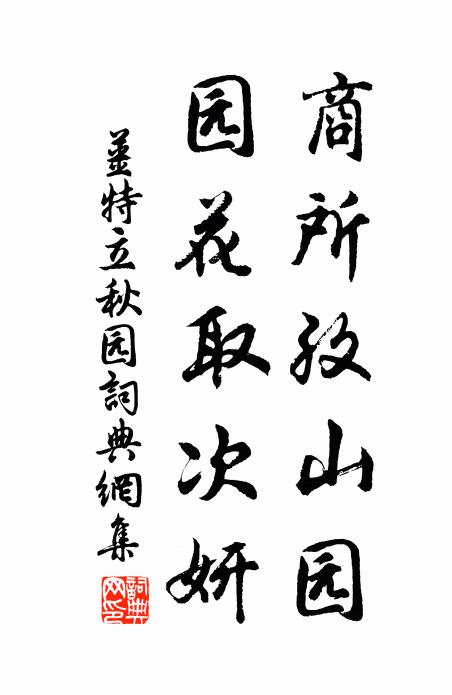 商所山园
园花取次妍
薑特立秋园詞典網集
詞典网印